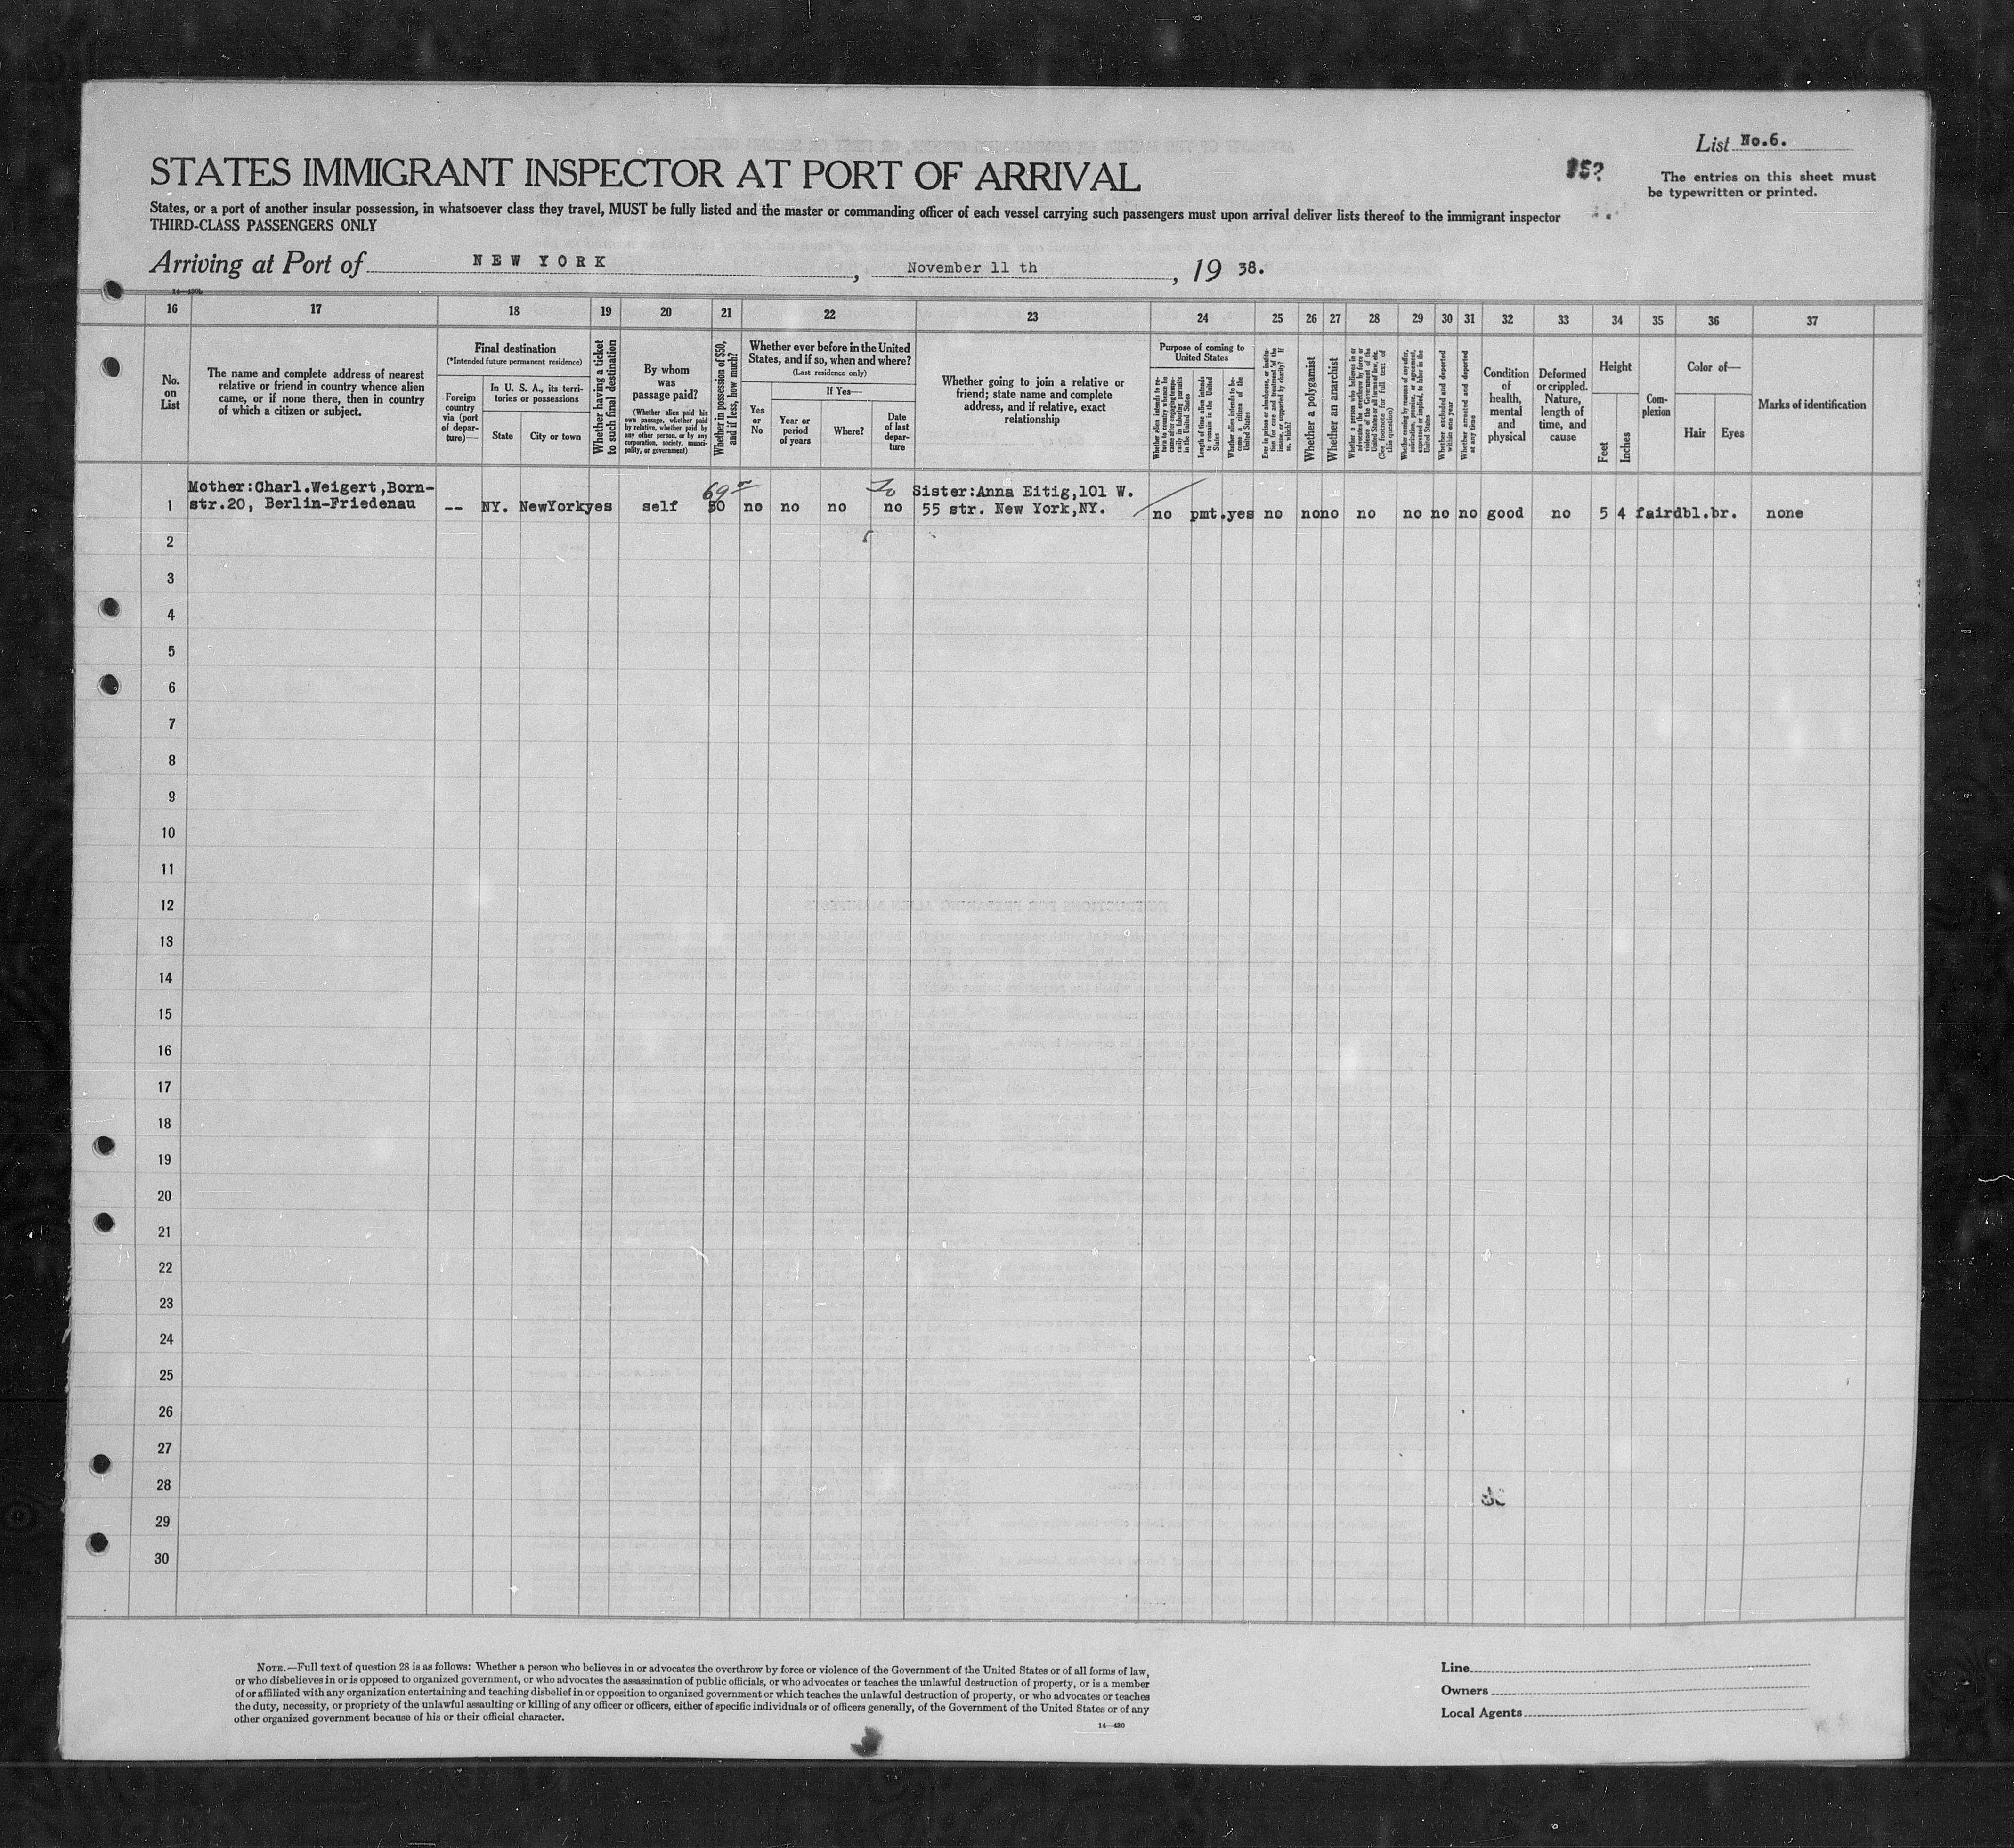 List No.6.
The entries on this sheet must
be typewritten or printed.
STATES IMMIGRANT INSPECTOR AT PORT OF ARRIVAL
States, or a port of another insular possession, in whatsoever class they travel, MUST be fully listed and the master or commanding officer of each vessel carrying such passengers must upon arrival deliver lists thereof to the immigrant inspector
THIRD-CLASS PASSENGERS ONLY
Arriving at Port of NEW YORK, November 11 th, 19 38.
16 17 18 19 20 21 22 23 24 25 26 27 28 29 30 31 32 33 34 35 36 37
No.
on
List
The name and complete address of nearest
relative or friend in country whence alien
came, or if none there, then in country
of which a citizen or subject.
Final destination
(*Intended future permanent residence)
Foreign
country
via (port
of depar-
ture)—
In U. S. A., its terri-
tories or possessions
State
City or town
Whether having a ticket
to such final destination
By whom
was
passage paid?
(Whether alien paid his
own passage, whether paid
by relative, whether paid by
any other person, or by any
corporation, society, munici-
pality, or government)
Whether in possession of $50,
and if less, how much?
Whether ever before in the United
States, and if so, when and where?
(Last residence only)
Yes
or
No
If Yes—
Year or
period
of years
Where?
Date
of last
depar-
ture
Whether going to join a relative or
friend; state name and complete
address, and if relative, exact
relationship
Purpose of coming to
United States
Whether alien intends to re-
turn to country whence he
came after engaging tempo-
rarily in laboring pursuits
in the United States
Length of time alien intends
to remain in the United
States
Whether alien intends to be-
come a citizen of the
United States
Ever in prison or almshouse, or institu-
tion for care and treatment of the
insane, or supported by charity? If
so, which?
Whether a polygamist
Whether an anarchist
Whether a person who believes in or
advocates the overthrow by force or
violence of the Government of the
United States or all forms of law, etc.
(See footnote for full text of
this question)
Whether coming by reasons of any offer,
solicitation, promise, or agreement,
expressed or implied, to labor in the
United States
Whether excluded and deported
within one year
Whether arrested and deported
at any time
Condition
of
health,
mental
and
physical
Deformed
or crippled.
Nature,
length of
time, and
cause
Height
Feet
Inches
Com-
plexion
Color of—
Hair
Eyes
Marks of identification
Mother:Charl.Weigert,Born-
69 Sister:Anna Eitig,101 W.
1 str.20, Berlin-Friedenau -- NY. NewYork yes self 50 no no no no 55 str. New York,NY. no pmt. yes no no no no no no no good no 5 4 fair dbl. br. none
2
3
4
5
6
7
8
9
10
11
12
13
14
15
16
17
18
19
20
21
22
23
24
25
26
27
28
29
30
NOTE.—Full text of question 28 is as follows: Whether a person who believes in or advocates the overthrow by force or violence of the Government of the United States or of all forms of law,
or who disbelieves in or is opposed to organized government, or who advocates the assassination of public officials, or who advocates or teaches the unlawful destruction of property, or is a member
of or affiliated with any organization entertaining and teaching disbelief in or opposition to organized government or which teaches the unlawful destruction of property, or who advocates or teaches
the duty, necessity, or propriety of the unlawful assaulting or killing of any officer or officers, either of specific individuals or of officers generally, of the Government of the United States or of any
other organized government because of his or their official character.
14—430
Line
Owners
Local Agents